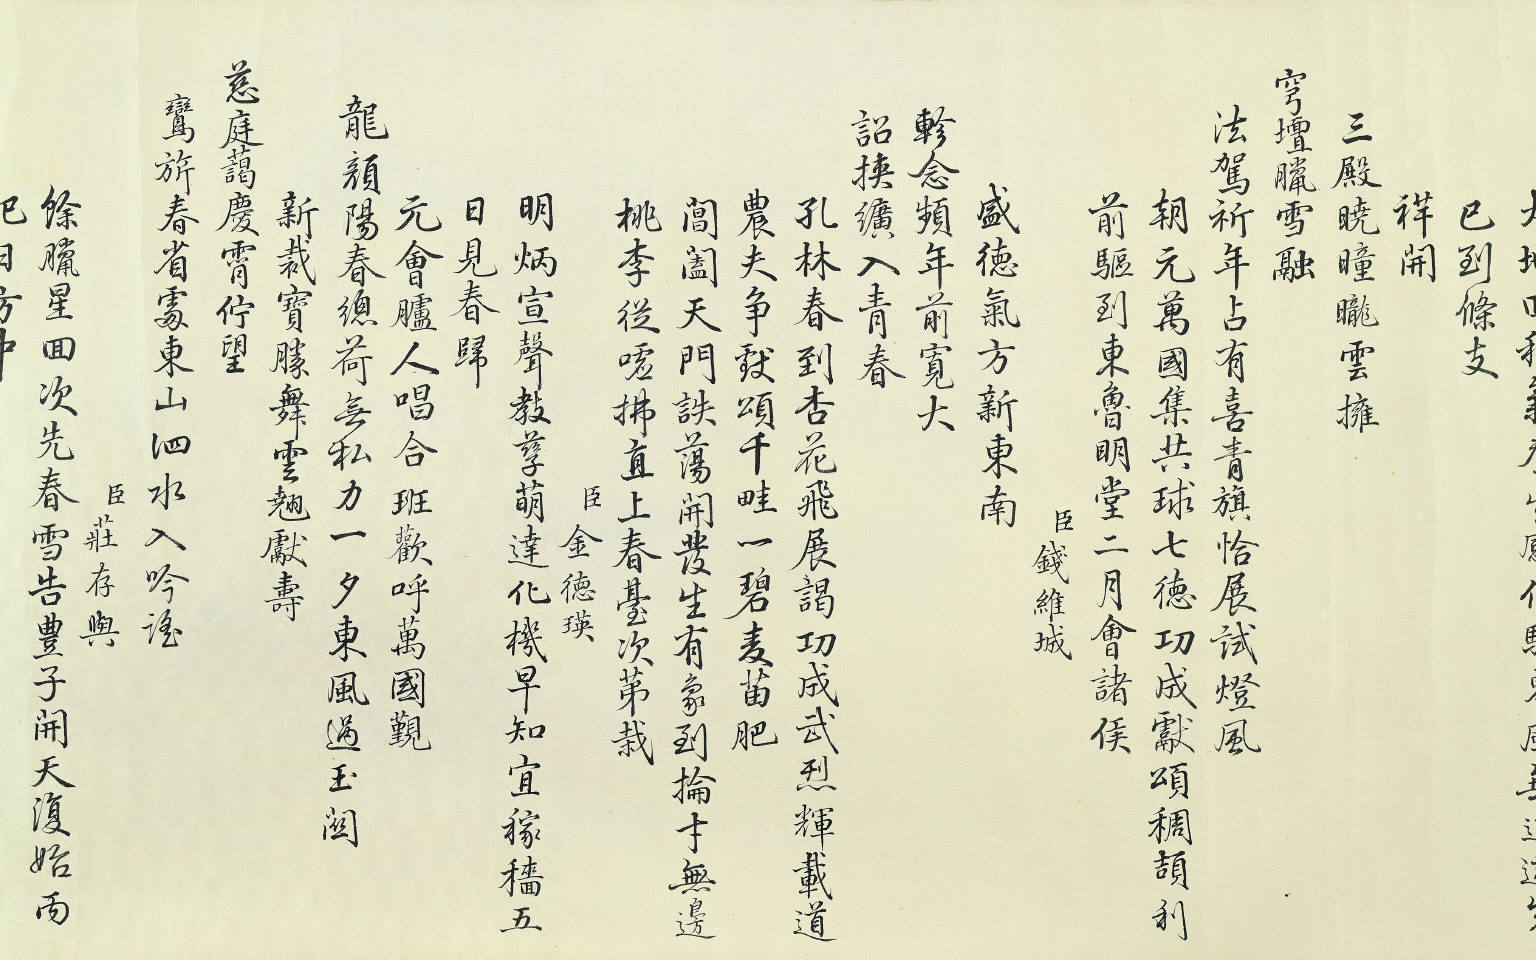 已到條支
祥開
三殿曉曈曨雲擁
穹壇臘雪融
法駕祈年占有喜青旗恰展試燈風
朝元萬國集共球七德功成獻頌稠頡利
前驅到東魯明堂二月會諸侯
臣錢維城
盛德氣方新東南
軫念頻年前寬大
詔挾纊入青春
孔林春到杏花飛展謁功成武烈輝載道
農夫爭獻頌千畦一碧麥苗肥
閶闔天門詄蕩開發生有象到掄才無邊
桃李從噓拂直上春臺次第栽
臣金德瑛
明炳宣聲教孳萌達化機早知宜稼穡五
日見春歸
元會臚人唱合班歡呼萬國覲
龍顏陽春總荷無私力一夕東風過玉關
新裁寶勝舞雲翹獻壽
慈庭藹慶霄佇望
鸞旂春省處東山泗水入吟謠
臣莊存與
餘臘星回次先春雪告豐子開天復始丙